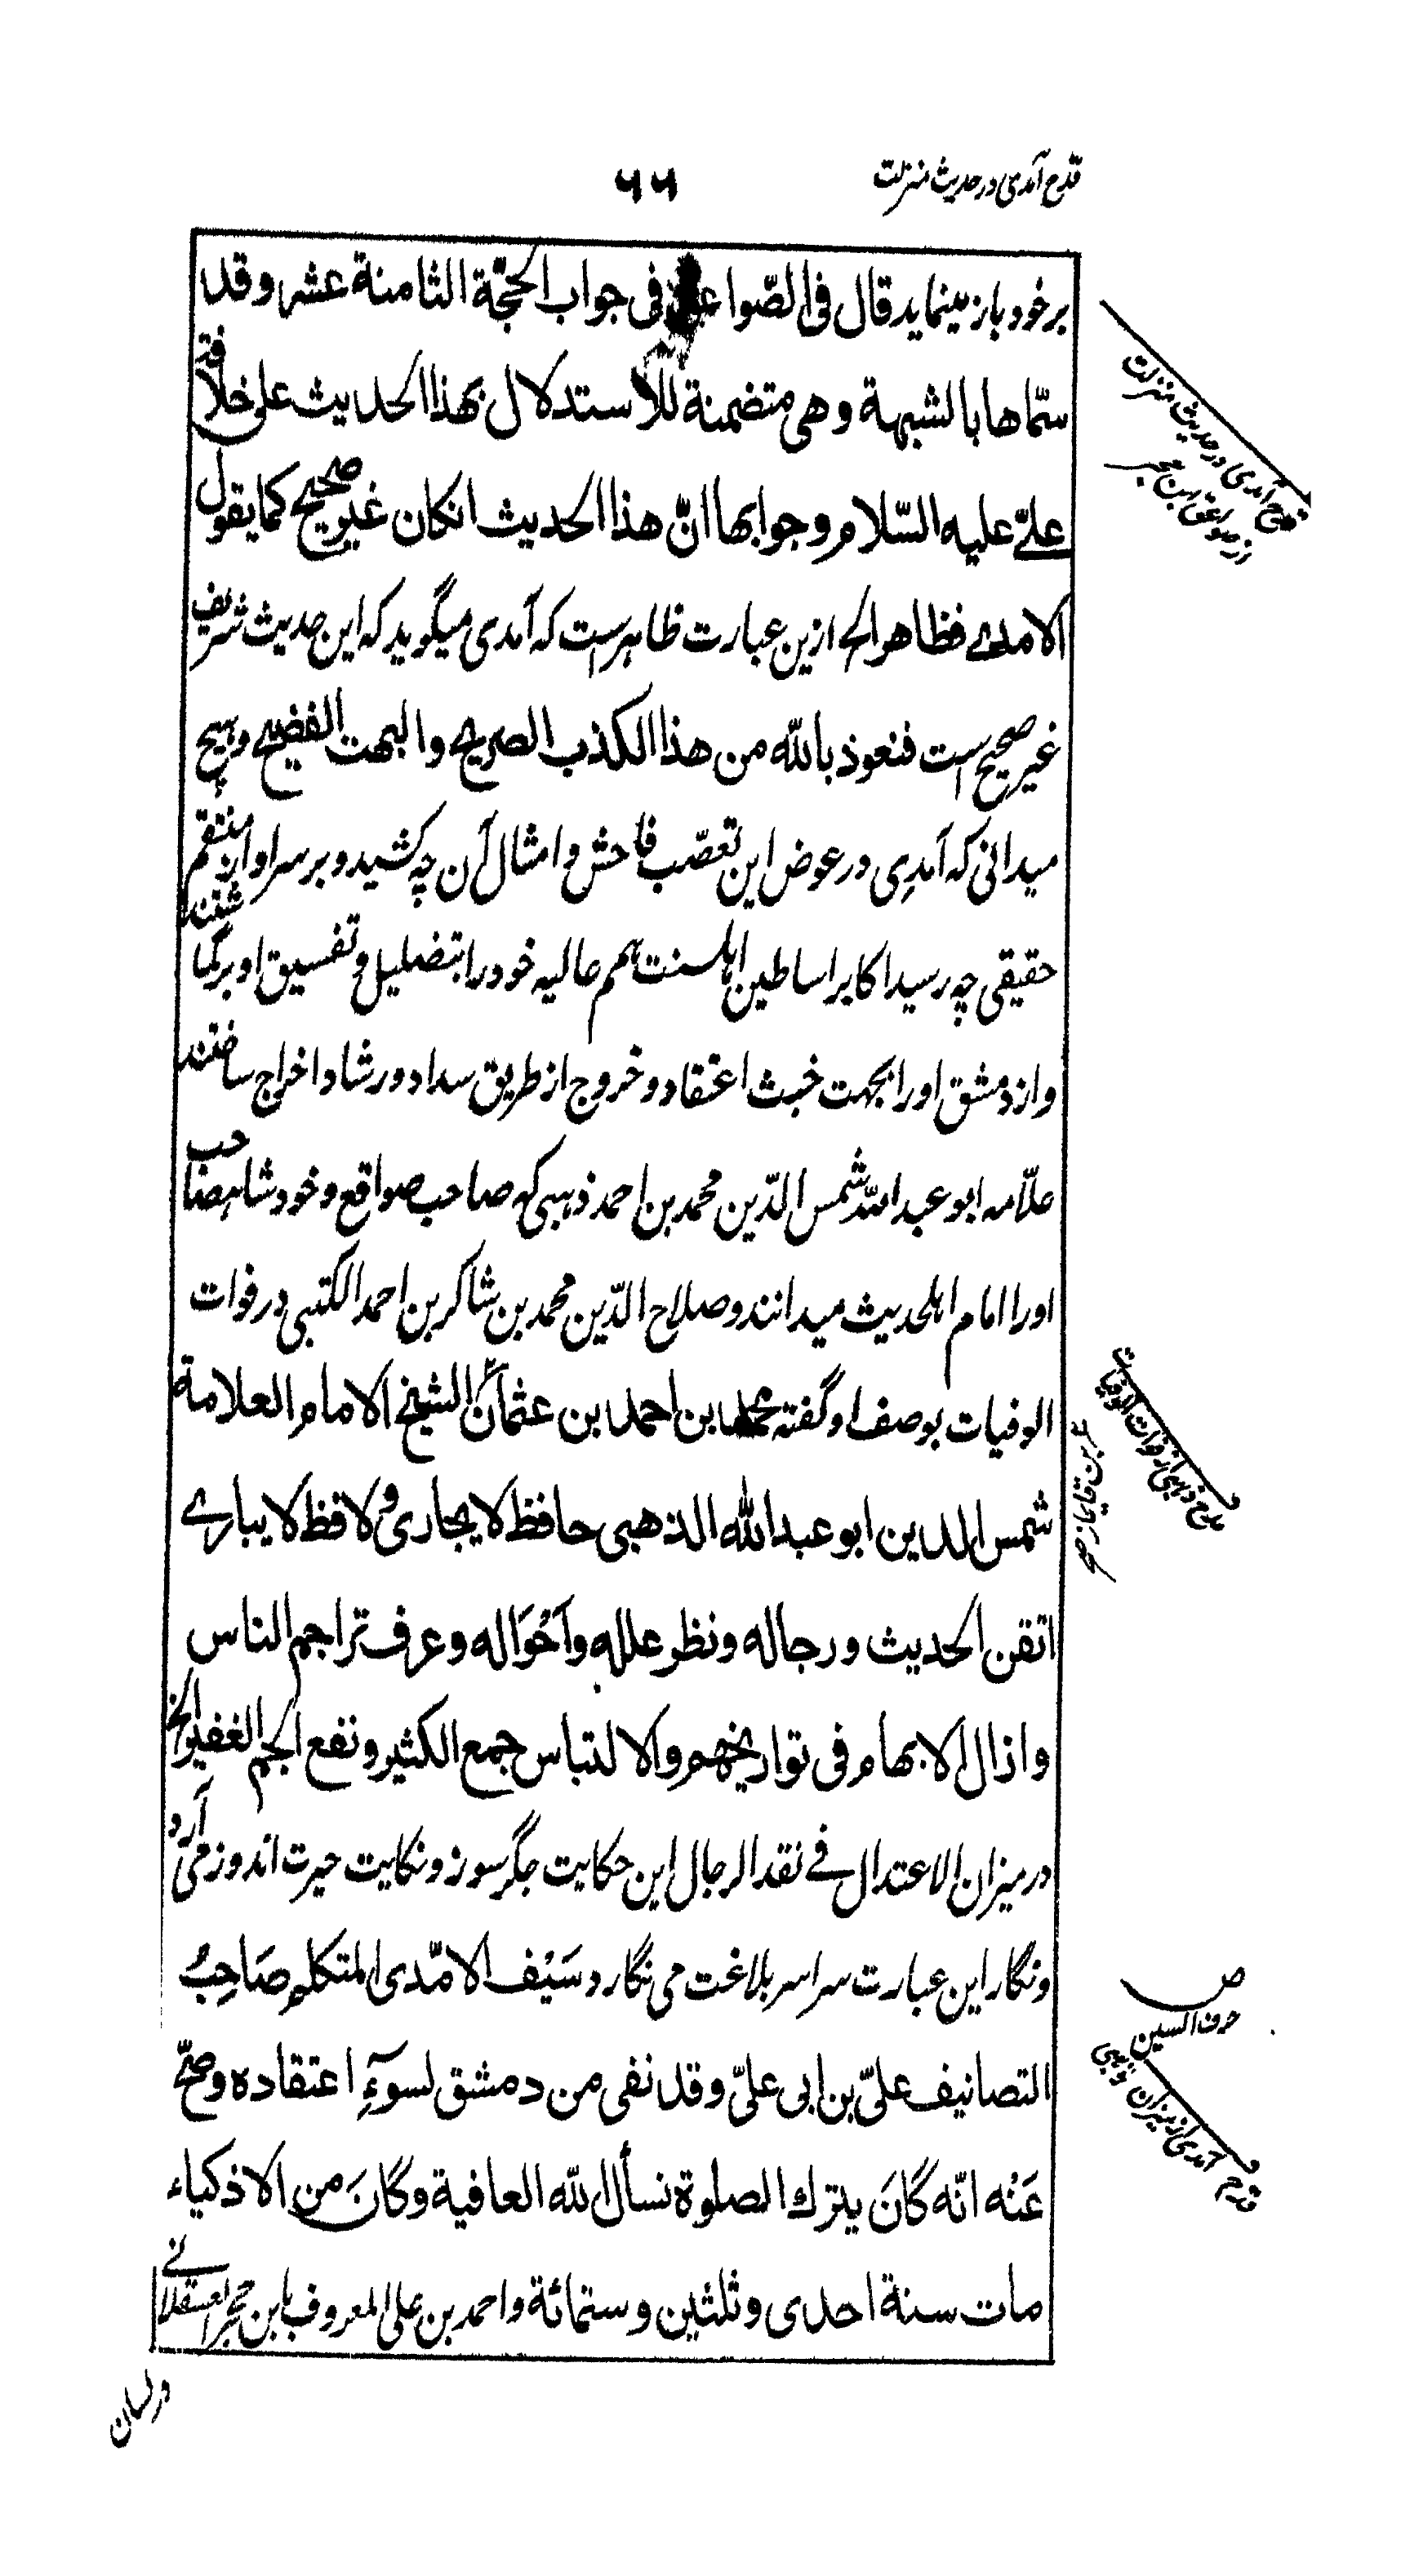 قدح آمدی در حدیث منزلت
۶۶
برخود باز مینماید قال فی الصّواعق فی جواب الحجّة الثامنة عشر وقد
سمّاها بالشبهة وهی متضمنة للاستدلال بهذا الحدیث علی خلافة
علیّ علیه السّلام وجوابها انّ هذا الحدیث انکان غیر صحیح کما یقول
الامدے فظاهر الخ ازین عبارت ظاهرست که آمدی میگوید که این حدیث شریف
غیر صحیح است فنعوذ بالله من هذا الکذب الصریح والبهت الفضیح وهیچ
میدانی که آمدِی در عوض این تعصّب فاحش وامثال آن چه کشید وبر سر او از منتقم
حقیقی چه رسید اکابر اساطین اهلسنت همم عالیه خود را بتضلیل وتفسیق او برگماشتند
واز دمشق او را بجهت خبث اعتقاد وخروج از طریق سداد ورشاد اخراج ساختند
علّامه ابو عبد الله شمس الدّین محمد بن احمد ذهبی که صاحب صواقع وخود شاهصاحب
او را امام اهلحدیث میدانند وصلاح الدّین محمد بن شاکر بن احمد الکتبی در فوات
الوفیات بوصف او گفته محمد بن احمد بن عثمان الشیخ الامام العلامة
شمس الدین ابو عبد الله الذهبی حافظ لا یجاری ولافظ لا یباری
اتقن الحدیث ورجاله ونظر علله وَاَحْوَاله وعرف تراجم الناس
واذال الابهام فی تواریخهم والالتباس جمع الکثیر ونفع الجم الغفیر الخ
در میزان الاعتدال فے نقد الرجال این حکایت جگر سوز ونکایت حیرت اندوز می آرد
ونگار این عبارت سراسر بلاغت می نگارد سَیْف الامّدی المتکلم صَاحِبُ
التصانیف علیّ بن ابی علیّ وقد نفی من دمشق لسوٓءِ اعتقاده وصحّ
عَنْه انّه کَانَ یترك الصلوة نسأل الله العافیة وکَانَ من الاذکیاء
مات سنة احدی وثلثین وستمائة واحمد بن علی المعروف بابن حجر العسقلانے
در لسان
قدح آمدی در حدیث منزلت
از صواعق ابن حجر
مدح ذهبی از فوات الوفیات
ص
حرف السین
قدح آمدی از میزان ذهبی